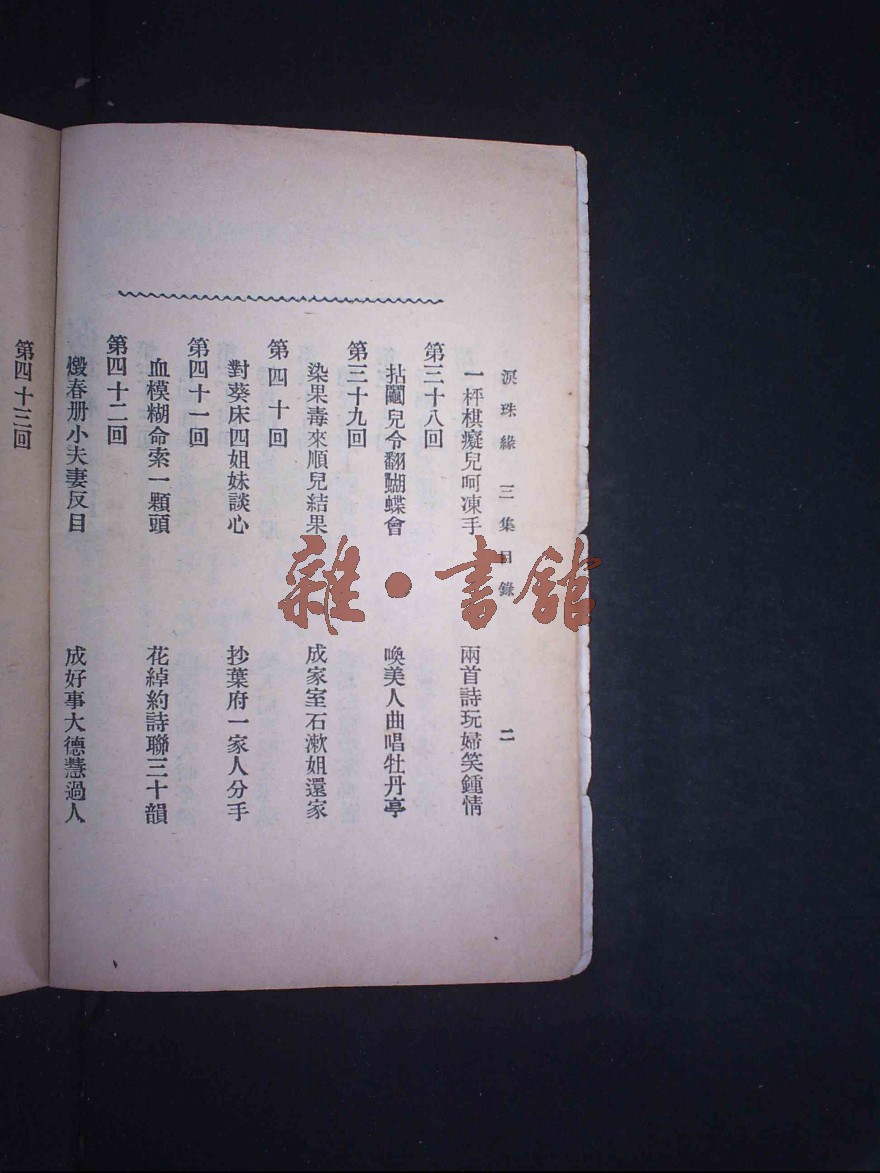 淚珠緣 三集目錄 二
一枰棋癡兒呵凍手 兩首詩玩婦笑鍾情
第三十八回
拈鬮兒令翻蝴蝶會 喚美人曲唱牡丹亭
第三十九回
染果毒來順兒結果 成家室石漱姐還家
第四十回
對葵床四姐妹談心 抄葉府一家人分手
第四十一回
血模糊命索一顆頭 花綽約詩聯三十韻
第四十二回
燬春册小夫妻反目 成好事大德慧過人
第四十三回
雜·書館